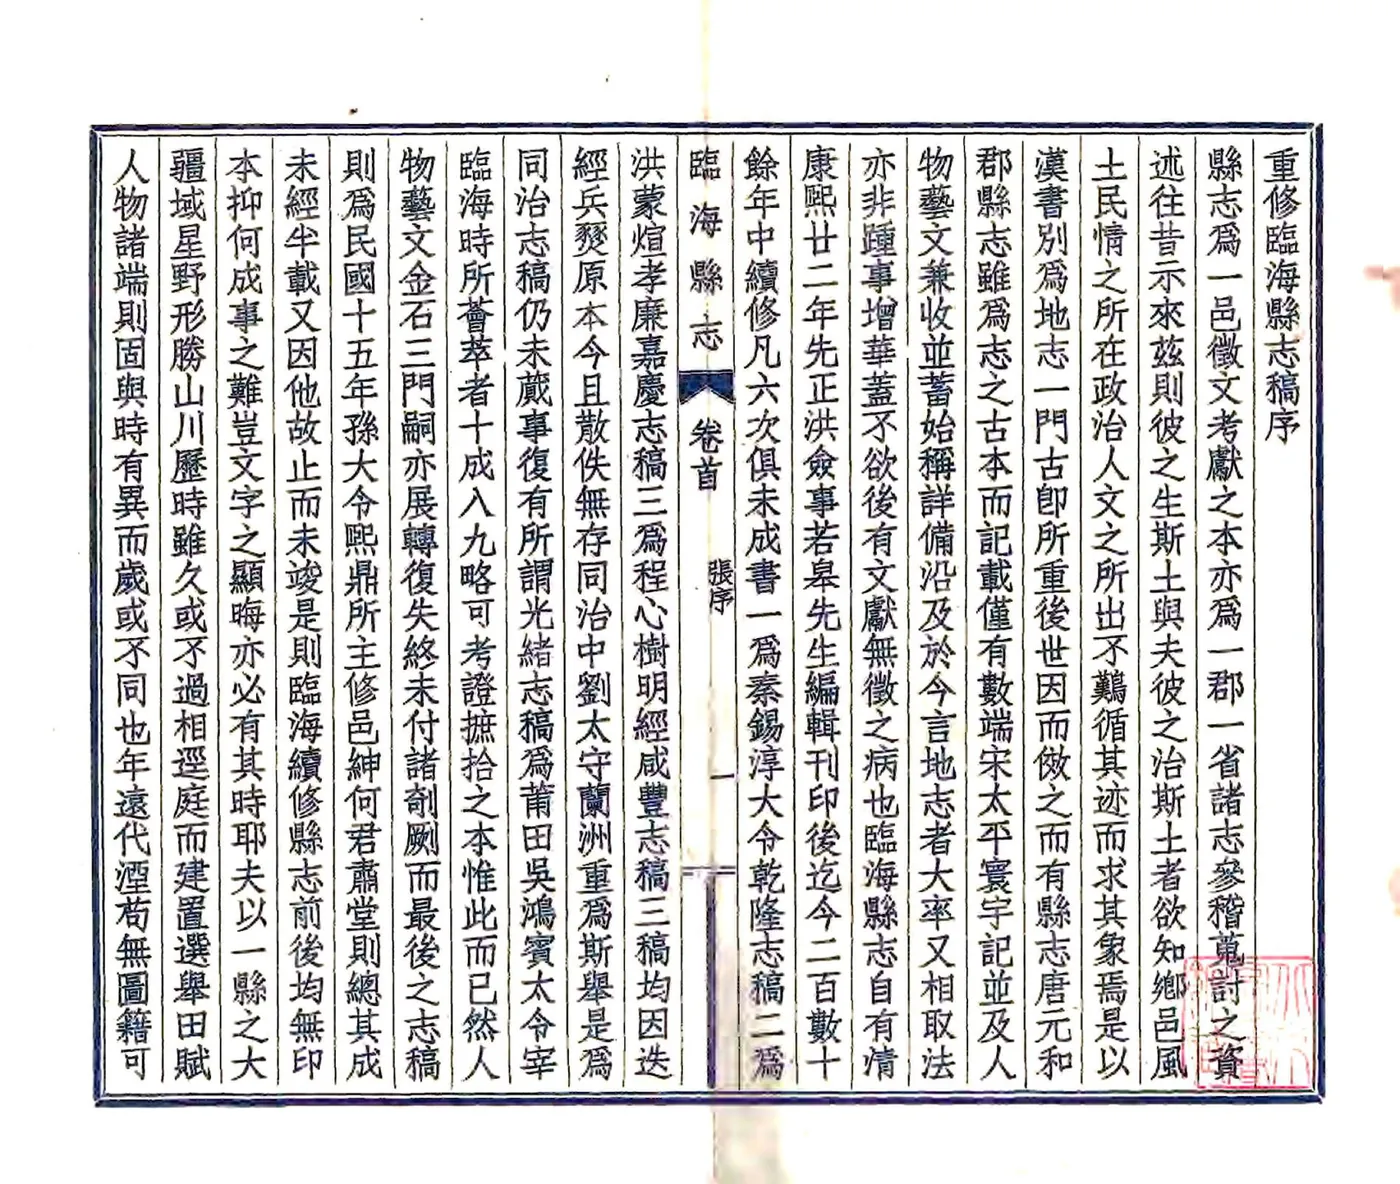 重修臨海縣志稿序
縣志爲一邑徵文考獻之本亦爲一郡一省諸志參稽蒐討之資
述往昔示來茲則彼之生斯土與夫彼之治斯土者欲知鄉邑風
土民情之所在政治人文之所出不鷬循其迹而求其象焉是以
漢書別爲地志一門古卽所重後世因而倣之而有縣志唐元和
郡縣志雖爲志之古本而記載僅有數端宋太平寰宇記並及人
物藝文兼收並蓄始稱詳備沿及於今言地志者大率又相取法
亦非踵事增華蓋不欲後有文獻無徵之病也臨海縣志自有清
康熙廿二年先正洪僉事若皋先生編輯刊印後迄今二百數十
餘年中續修凡六次俱未成書一爲秦錫淳大令乾隆志稿二爲
臨海縣志 卷首 張序 一
洪蒙煊孝廉嘉慶志稿三爲程心樹明經咸豐志稿三稿均因迭
經兵燹原本今且散佚無存同治中劉太守蘭洲重爲斯舉是爲
同治志稿仍未蕆事復有所謂光緒志稿爲莆田吳鴻賓太令宰
臨海時所薈萃者十成八九略可考證摭拾之本惟此而已然人
物藝文金石三門嗣亦展轉復失終未付諸剞劂而最後之志稿
則爲民國十五年孫大令熙鼎所主修邑紳何君肅堂則總其成
未經半載又因他故止而未竣是則臨海續修縣志前後均無印
本抑何成事之難豈文字之顯晦亦必有其時耶夫以一縣之大
疆域星野形勝山川歷時雖久或不過相逕庭而建置選舉田賦
人物諸端則固與時有異而歲或不同也年遠代湮苟無圖籍可